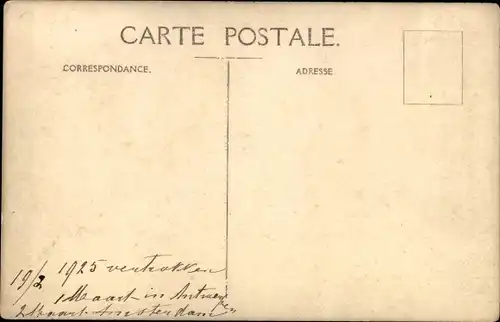 CARTE POSTALE.
CORRESPONDANCE.
ADRESSE
19/2 1925 vertrokken
1 Maart in Antwerpen
2 Maart Amsterdam